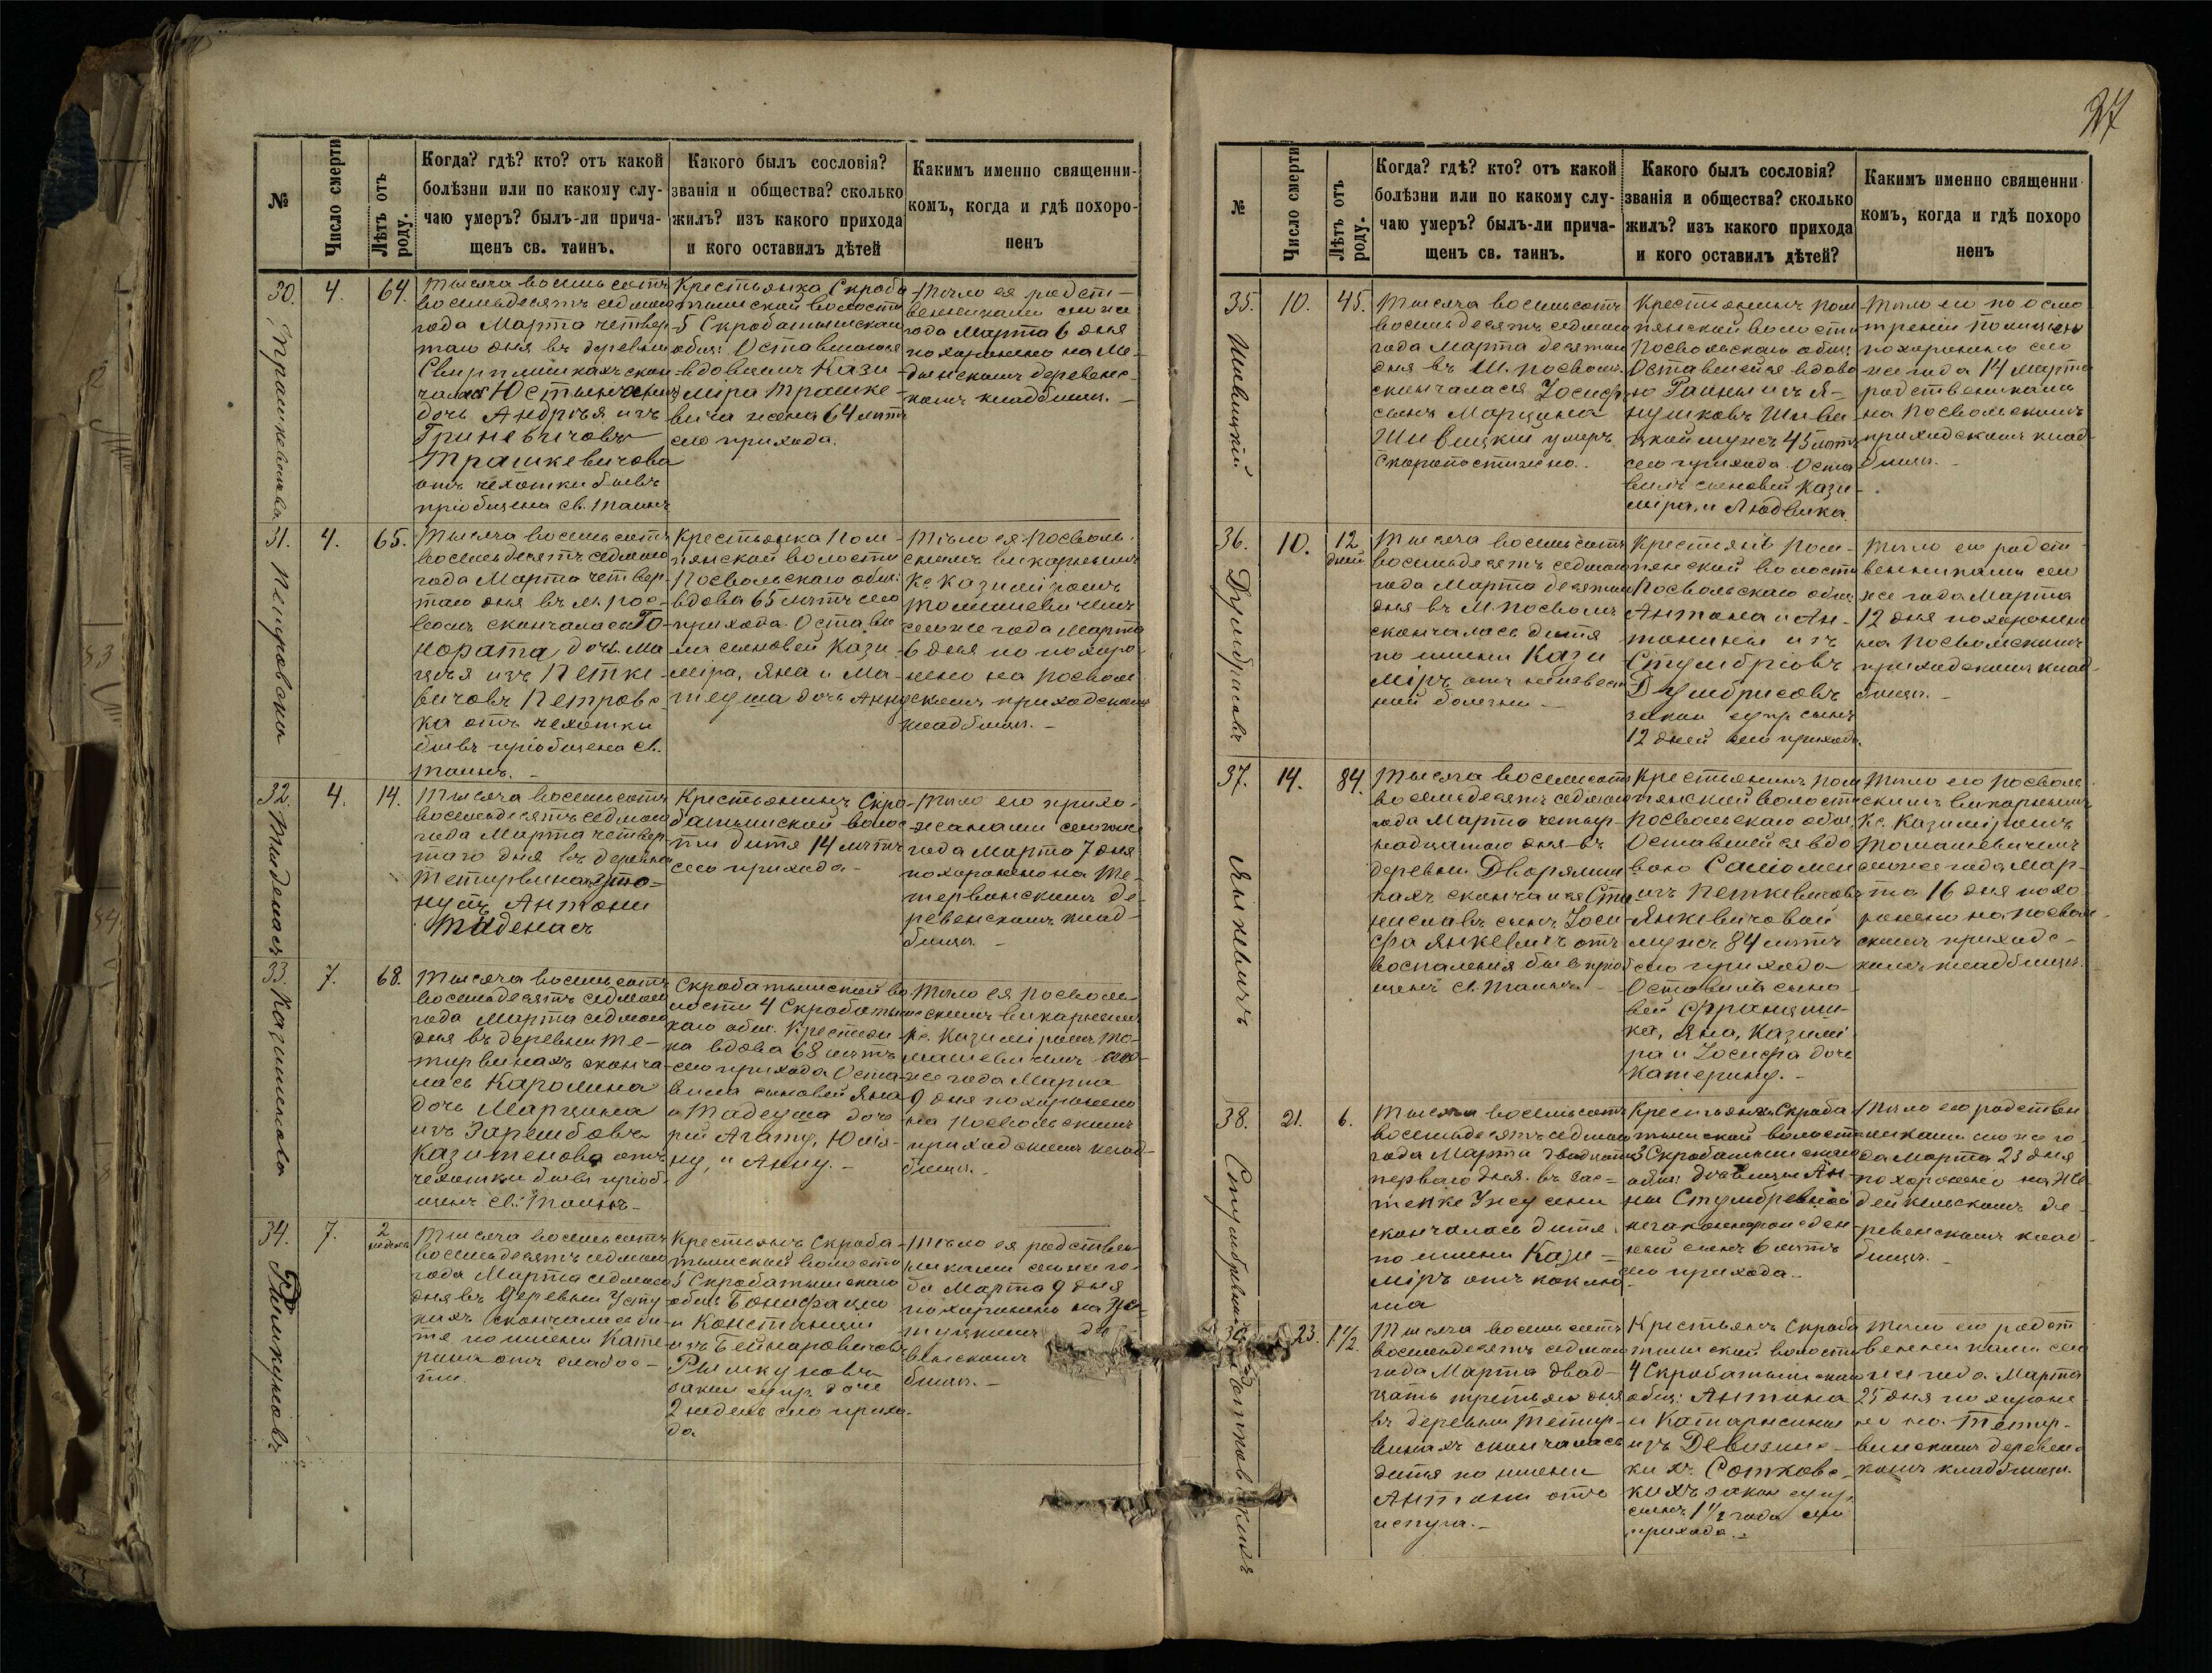 27
№
Число смерти
Лѣтъ отъ роду.
Когда? гдѣ? кто? отъ какой
болѣзни или по какому слу-
чаю умеръ? былъ-ли прича-
щенъ св. таинъ.
Какого былъ сословія?
званія и общества? сколько
жилъ? изъ какого прихода
и кого оставилъ дѣтей
Какимъ именно священни-
комъ, когда и гдѣ похоро-
ненъ
30.
4.
64.
Тысяча восемьсотъ
восемьдесятъ седмаго
года Марта четвер-
таго дня въ деревни
дочь Андрея изъ
Гриневичовъ
Трашкевичова
отъ чехотки бывъ
пріобщена св. Таинъ
Крестьянка Скроба
тышской волости
5 Скробатышскаго
общ: Оставшогося
вдовцемъ Кази-
міра Трашке-
вича жена 64 лѣтъ
сего прихода.
Тѣло ея родст-
венниками сего же
года Марта 6 дня
похоронено на
деревенс-
комъ кладбищи.
31.
Петровска
4.
65.
Тысяча восемьсотъ
восемьдесятъ седмаго
года Марта четвер-
таго дня въ м. Пос-
воль скончалась Го-
нората, дочь Ма
изъ Петке-
вичовъ Петровс-
ка отъ чехотки
бывъ пріобщена св.
Таинъ.
Крестьянка Пом-
пянской волости
Посвольскаго общ:
вдова 65 лѣтъ сего
прихода. Остави
ла сыновей Кази-
міра, Яна и Ма-
теуша дочь Анну
Тѣло ея Посволь-
скимъ викарнымъ
Кс. Казиміромъ
Томашевичемъ
сего же года Марта
6 дня похоро-
нено на Посволь
скимъ приходскомъ
кладбищи.
32.
4.
14.
Тысяча восемьсотъ
восемьдесятъ седмаго
года Марта четвер-
таго дня въ деревни
нулъ Антони
Крестьянинъ Скро-
батышской волос-
ти дитя 14 лѣтъ
сего прихода.
Тѣло его прихо-
жанами сего же
года Марта 7 дня
похоронено на Те-
тервинскимъ де-
ревенскимъ клад-
бищи.
33.
7.
68.
Тысяча восемьсотъ
восемьдесятъ седмаго
года Марта седмаго
дня въ деревни Те-
тирвинахъ сконча-
лась Каролина
дочь Марцина
изъ Зарембовъ
Казименова отъ
чехотки бывъ пріоб-
щенъ св: Таинъ.
Скробатышской во
лости 4 Скробатыш
каго общ. Крестьян-
ка вдова 68 лѣтъ
сего прихода Оста-
вила сыновей Яна
и Тадеуша доче
рій Агату, Юлія-
ну, и Анну.
Тѣло ея Посволь-
скимъ викарнымъ
Кс. Казиміромъ То-
машевичемъ сего
же года Марта
9 дня похоронено
на Посвольскимъ
приходскимъ клад-
бищи.
34.
Римкуновъ
7.
2
недель
Тысяча восемьсотъ
восемьдесятъ седмаго
года Марта седмаго
дня въ деревни Усту
кахъ скончалась ди-
тя по имени Кате-
рина отъ слабос-
ти.
Крестьянъ Скроба-
тышской волости
5 Скробатышскаго
общ. Бонифацего
и Констанціи
изъ Бейнаровичовъ
Рымкуновъ
закон супр. дочь
2 недель сего прихо-
да
Тѣло ея родствен
никами сего же го-
да Марта 9 дня
похоронено на Ус-
тукскимъ де
венскомъ
бищи.
№
Число смерти
Лѣтъ отъ роду.
Когда? гдѣ? кто? отъ какой
болѣзни или по какому слу-
чаю умеръ? былъ-ли прича-
щенъ св. таинъ.
Какого былъ сословія?
званія и общества? сколько
жилъ? изъ какого прихода
и кого оставилъ дѣтей?
Какимъ именно священни
комъ, когда и гдѣ похоро
ненъ
35.
Шивицкій
10.
45.
Тысяча восемьсотъ
восемьдесятъ седмаго
года Марта десятаго
дня въ М. Посволь
скончалася Іосифъ
сынъ Марцина
Шивицкій умеръ
скоропостижно.
Крестьянинъ Пом
пянской волости
Посвольскаго общ:
Оставшейся вдово
ю Раины изъ Я-
нушковъ Шиви
цкой мужъ 45 лѣтъ
сего прихода. Оста
вилъ сыновей Кази-
міра, и Людвика.
Тѣло его по осмо
треніи Полиціею
похоронено сего
же года 14 Марта
родствениками
на Посвольскимъ
приходскимъ клад-
бищи.
36.
Думбрисовъ
10.
12
дней
Тысяча восемьсотъ
восемьдесятъ седмаго
года Марта десятаго
дня въ М. Посволь
скончалась дитя
по имени Кази
міръ отъ неизвест-
ной болезни.
Крестьянъ Пом-
пянской волости
Посвольскаго общ:
Антона и Ан-
тонины изъ
Стумбрiовъ
Думбрисовъ
закон супр сынъ
12 дней сего прихода.
Тѣло его родст-
венниками сего
же года Марта
12 дня похоронено
на Посвольскимъ
приходскимъ клад-
бищи.
37.
Янкевичъ
14.
84.
Тысяча восемьсотъ
восемьдесятъ седмаго
года Марта четыр-
надцатаго дня въ
деревни Дворялиш
кахъ скончался Ста
ниславъ сынъ Іоси-
фа Янкевичъ отъ
воспаленія бывъ пріоб
щенъ св. Таинъ.
Крестьянинъ Пом
пянской волости
Посвольскаго общ.
Оставшейся вдо
вою Саломеи
изъ Петкевичовъ
Янкевичовой
мужъ 84 лѣтъ
сего прихода
Оставилъ сыно-
вей Францыш-
ка, Яна, Казимі
ра и Іосифа дочь
Катерину.
Тѣло его Посволь
скимъ викарнымъ
Кс. Казиміромъ
Томашевичемъ
сего же года Мар-
та 16 дня похо-
ронено на Посволь-
скимъ приходс-
комъ кладбищи.
38.
21.
6.
Тысяча восемьсотъ
восемьдесятъ седмаго
года Марта двадцать
перваго дня въ зас-
тенке
скончалась дитя
по имени Кази-
міръ отъ коклю-
ша
Скроба
тышской волости
3 Скробатышскаго
общ: девицы Ан-
ны
незаконнорожден-
ный сынъ 6 лѣтъ
сего прихода.
Тѣло его родствен
никами сего же го-
да Марта 23 дня
похоронено на
де-
ревенскимъ клад-
бищи.
23.
1½.
Тысяча восемьсотъ
восемьдесятъ седмаго
года Марта двад-
цать третьяго дня
въ деревни Тетир-
винахъ скончалась
дитя по имени
Антони отъ
испуга.
Крестьянъ Скроба
тышской волости
4 Скробатышскаго
общ: Антона
и Катарысины
изъ Девизинс-
кихъ Сотковс-
кихъ закон супр.
сынъ 1½ года сего
прихода.
Тѣло его родст
венниками сего
же года Марта
25 дня похороне
но на Тетир-
винскимъ деревенс
комъ кладбищи.